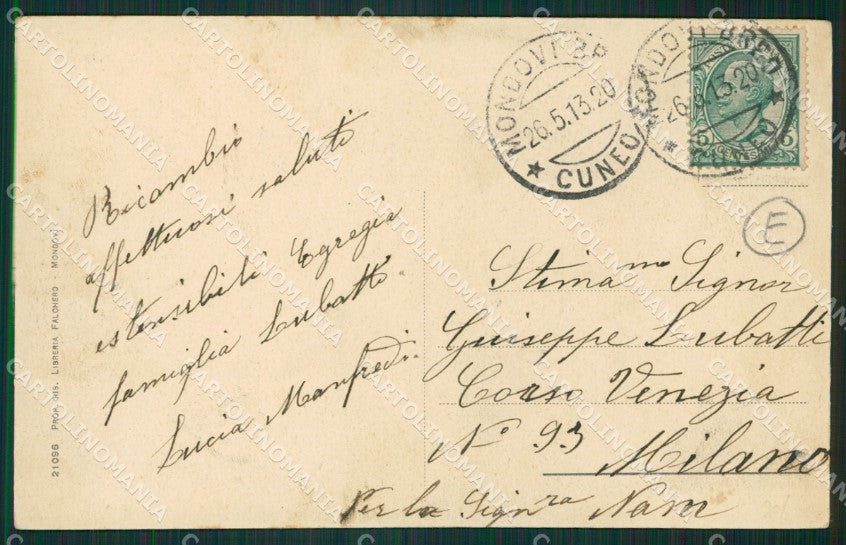 MONDOVI BR
26.5.13.20
CUNEO
MONDOVI BREO
26.5.13.20
CUNEO
E
Ricambio
affettuosi saluti
estensibili Egregia
famiglia Lubatti.
Lucia Manfredi.
Stima mo Signor
Giuseppe Lubatti
Corso Venezia
N° 93
Milano
Per la Sign ra Nam
21096 PROP. RIS. LIBRERIA FALONERO - MONDOVI
CARTOLINOMANIA